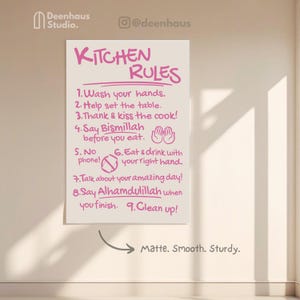 Deenhaus
Studio.
@deenhaus
KITCHEN
RULES
1. Wash your hands.
2. Help set the table.
3. Thank & kiss the cook!
4. Say Bismillah
before you eat.
5. No
phone!
6. Eat & drink with
your right hand.
7. Talk about your amazing day!
8. Say Alhamdulillah when
you finish.
9. Clean up!
Matte. Smooth. Sturdy.